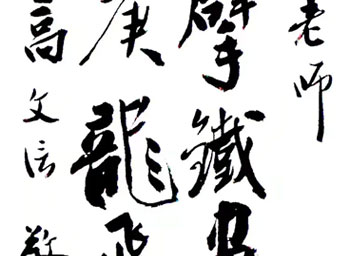 老师
擘鐵
庚龍飛
高文信敬